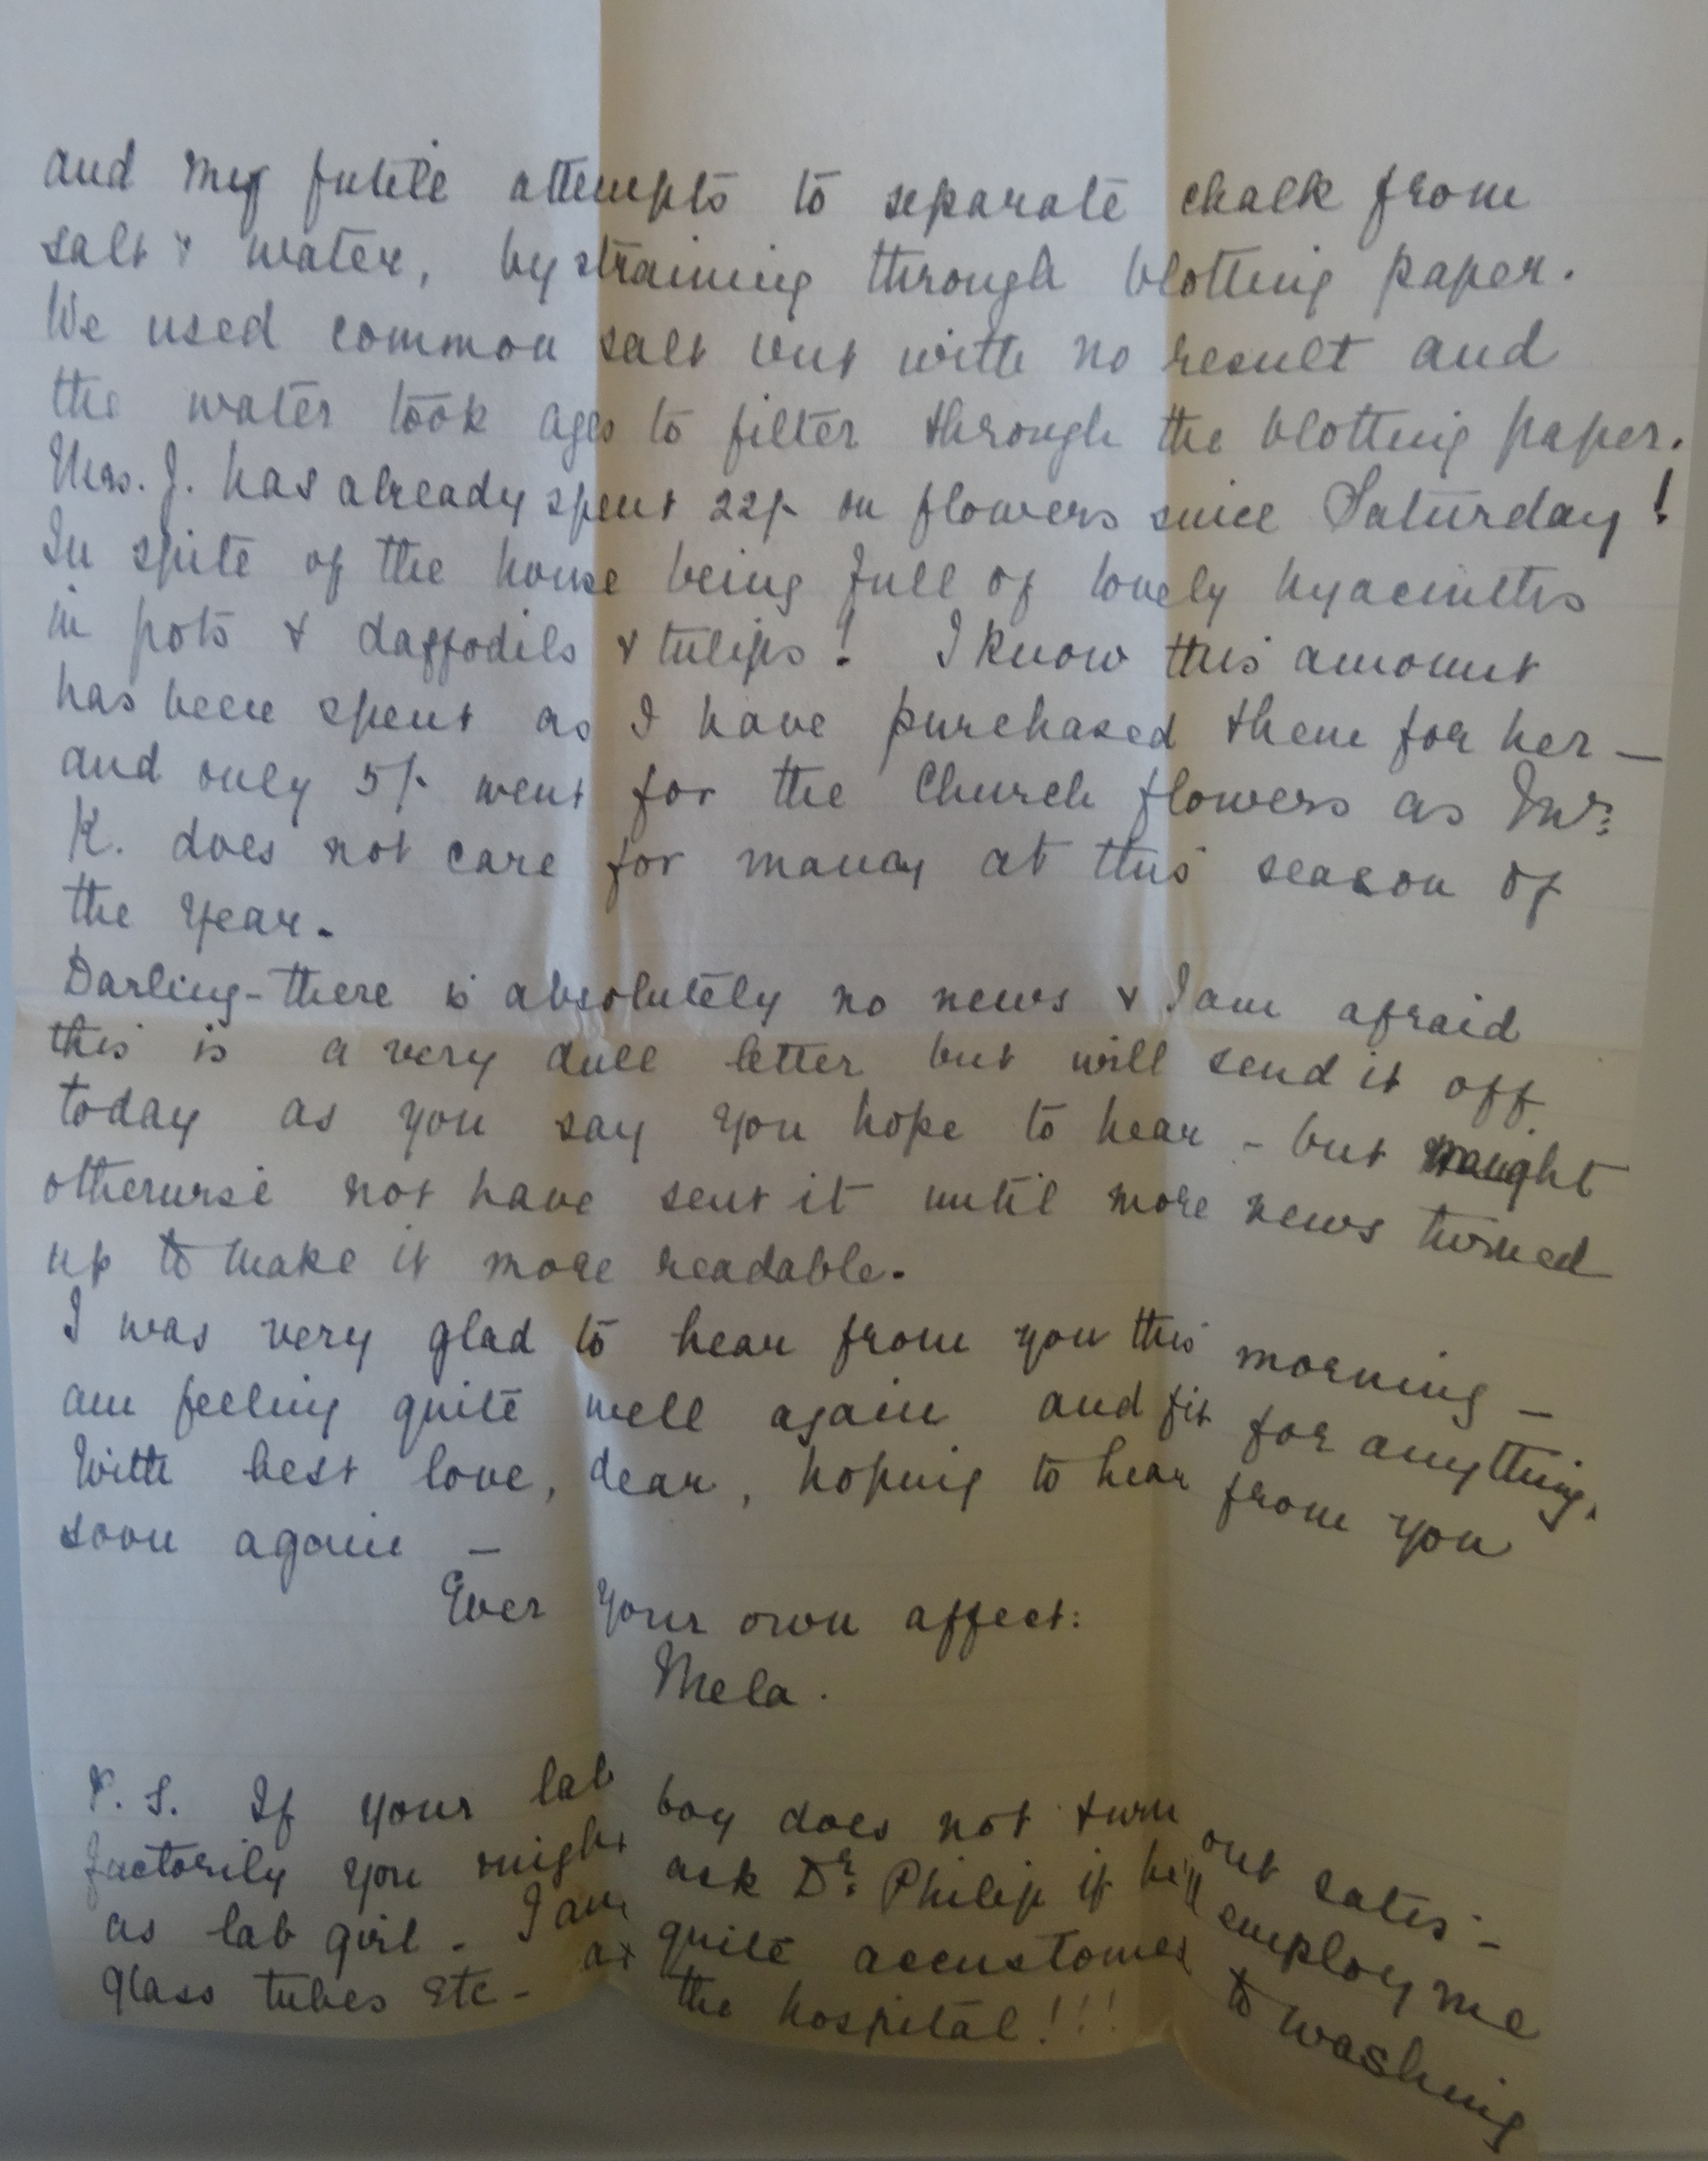 and my futile attempts to separate chalk from
salt & water, by straining through blotting paper.
We used common salt but with no result and
the water took ages to filter through the blotting paper.
Mrs. J. has already spent 22/- on flowers since Saturday!
In spite of the house being full of lovely hyacinths
in pots & daffodils & tulips! I know this amount
has been spent as I have purchased them for her —
and only 5/- went for the Church flowers as Mrs:
K. does not care for many at this season of
the year.
Darling - there is absolutely no news & I am afraid
this is a very dull letter but will send it off
today as you say you hope to hear - but might
otherwise not have sent it until more news turned
up to make it more readable.
I was very glad to hear from you this morning —
am feeling quite well again and fit for anything.
With best love, dear, hoping to hear from you
soon again —
Ever your own affect:
Mela.
P.S. If your lab boy does not turn out satis-
factorily you might ask Dr: Philip if he'll employ me
as lab girl - I am quite accustomed to washing
glass tubes etc - at the hospital!!!